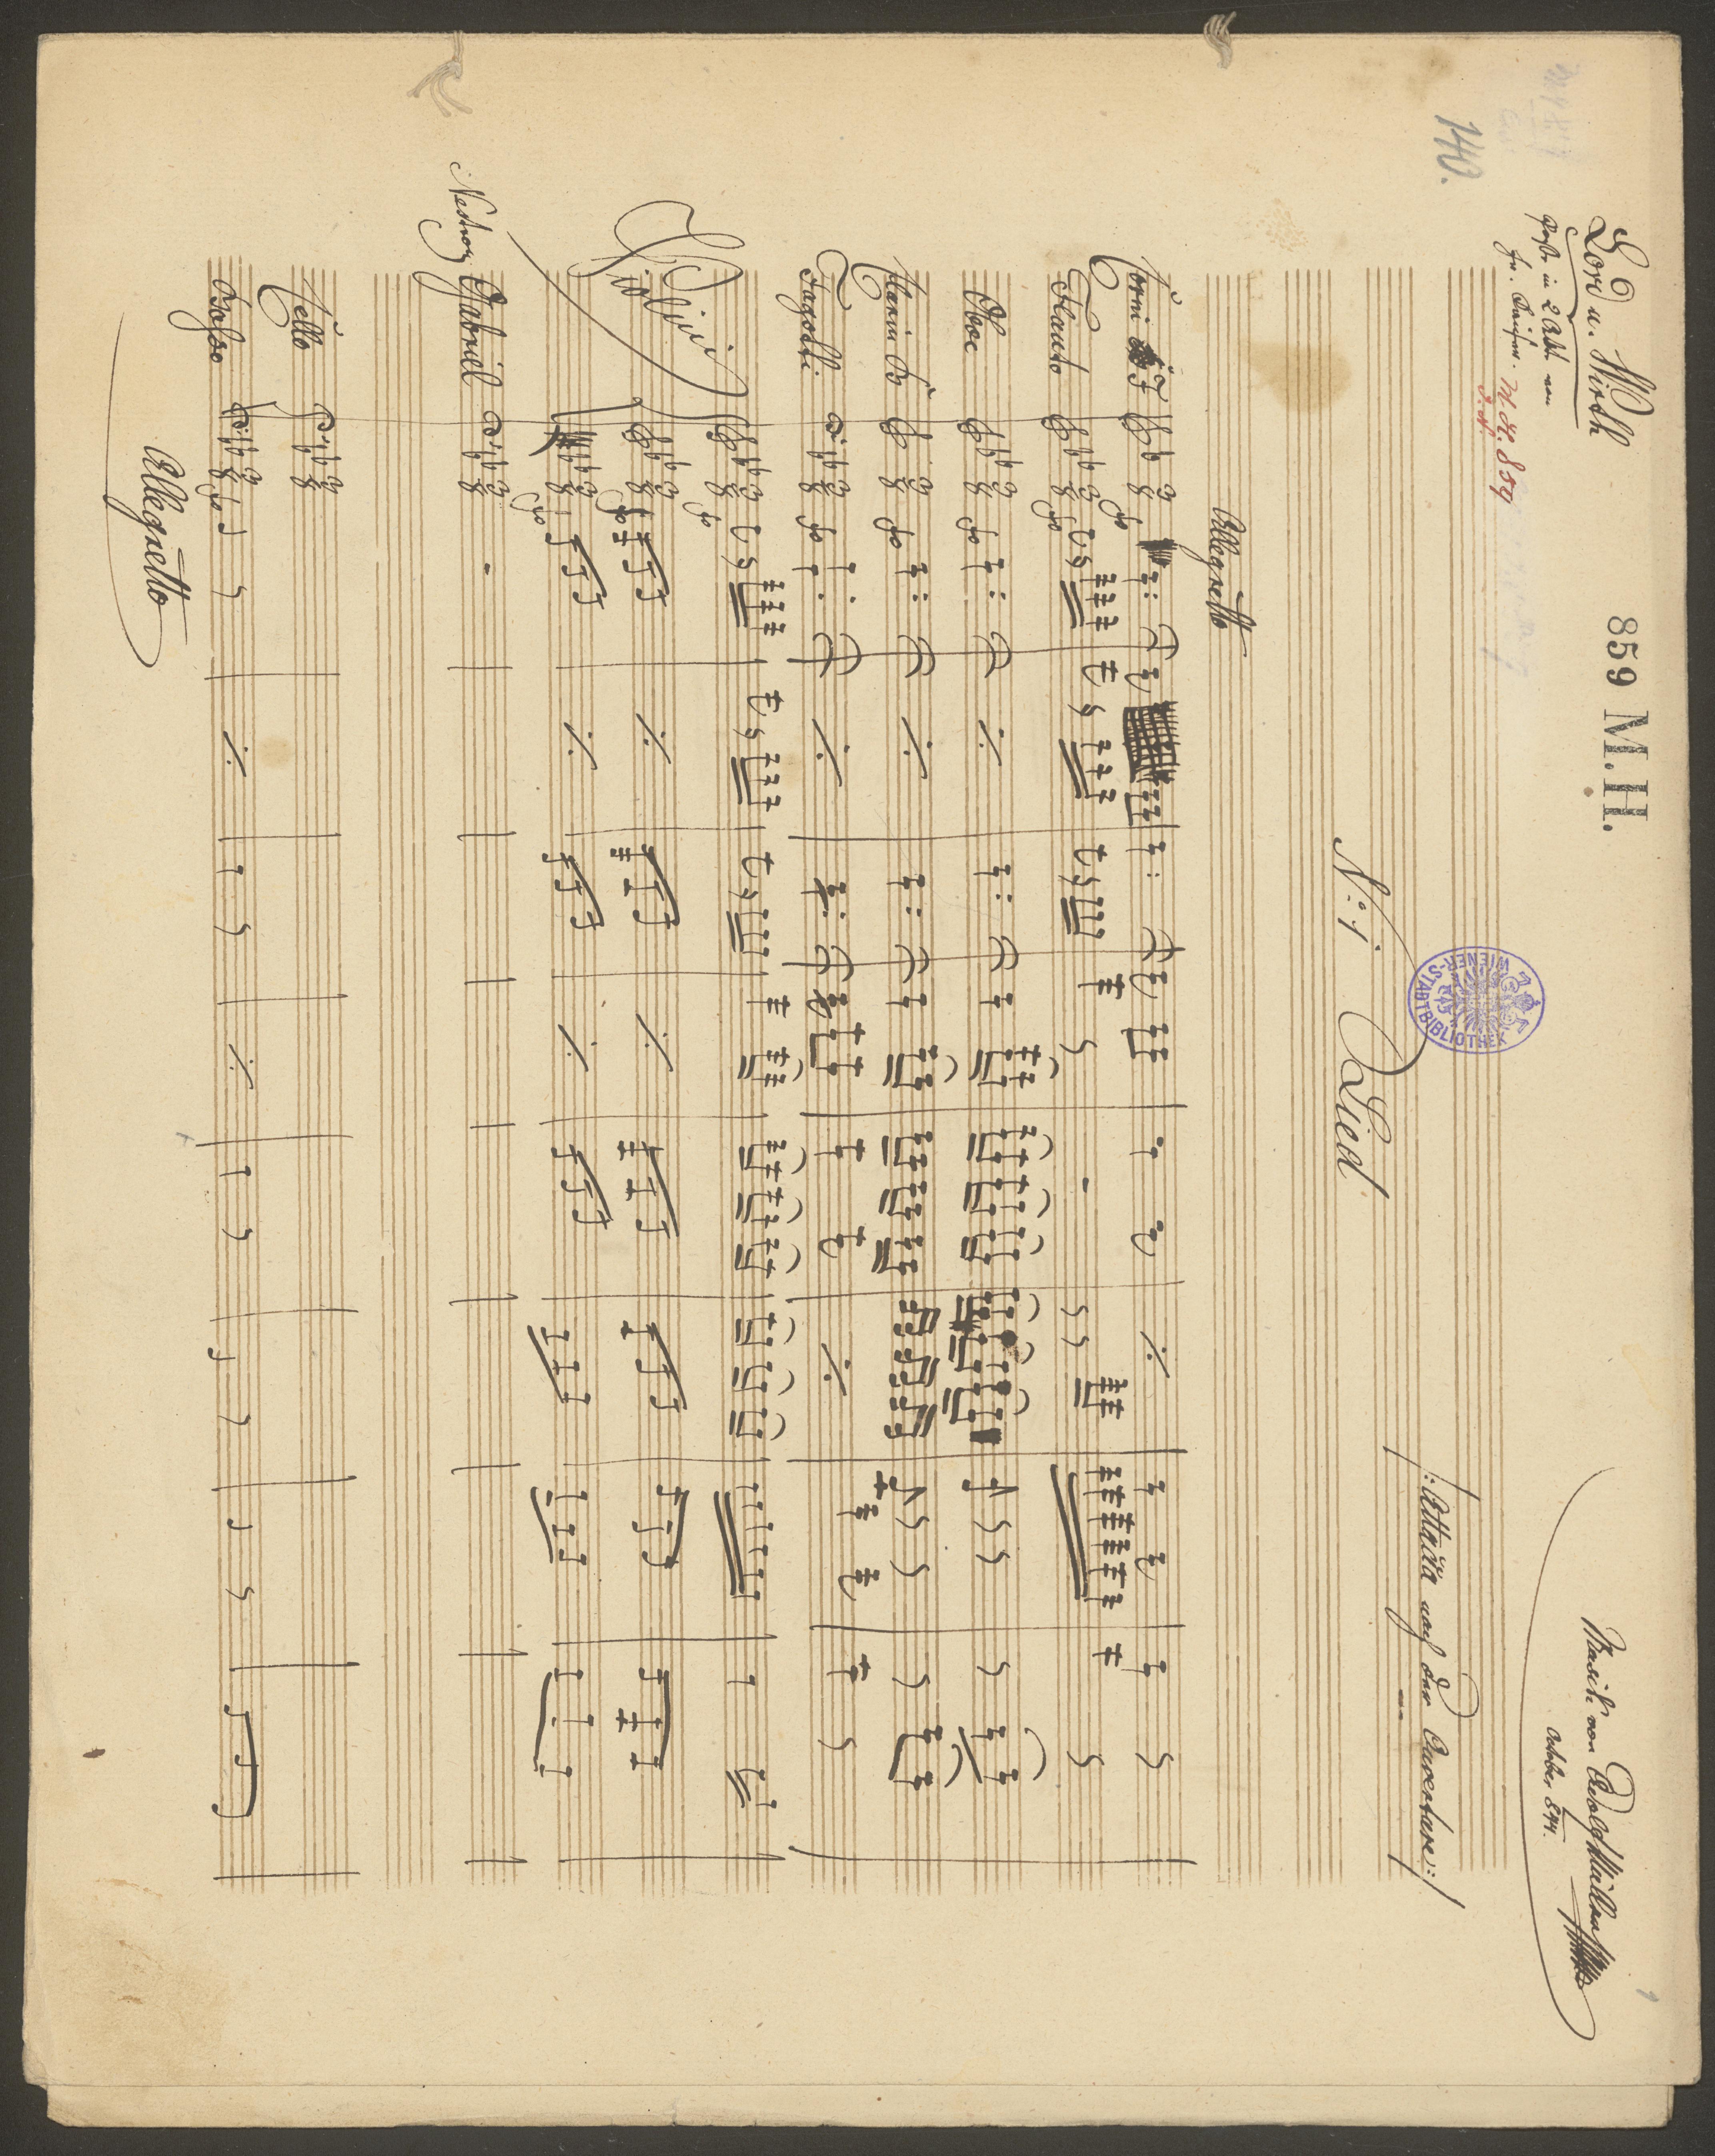 Lord u. Wirth
Posse in 2 Akt. von
Fr. Kaiser.
M.H. 859
859 M.H.
140.
Musik von Adolf Müller
October 844.
WIENER-STADTBIBLIOTHEK
N: 1. Lied
|: Attacca nach der Ouverture :|
Allegretto
Corni F
Flauto
Oboe
Clarin B
Fagotti
Violini
Nestroy Gabriel
Cello
Basso
Allegretto